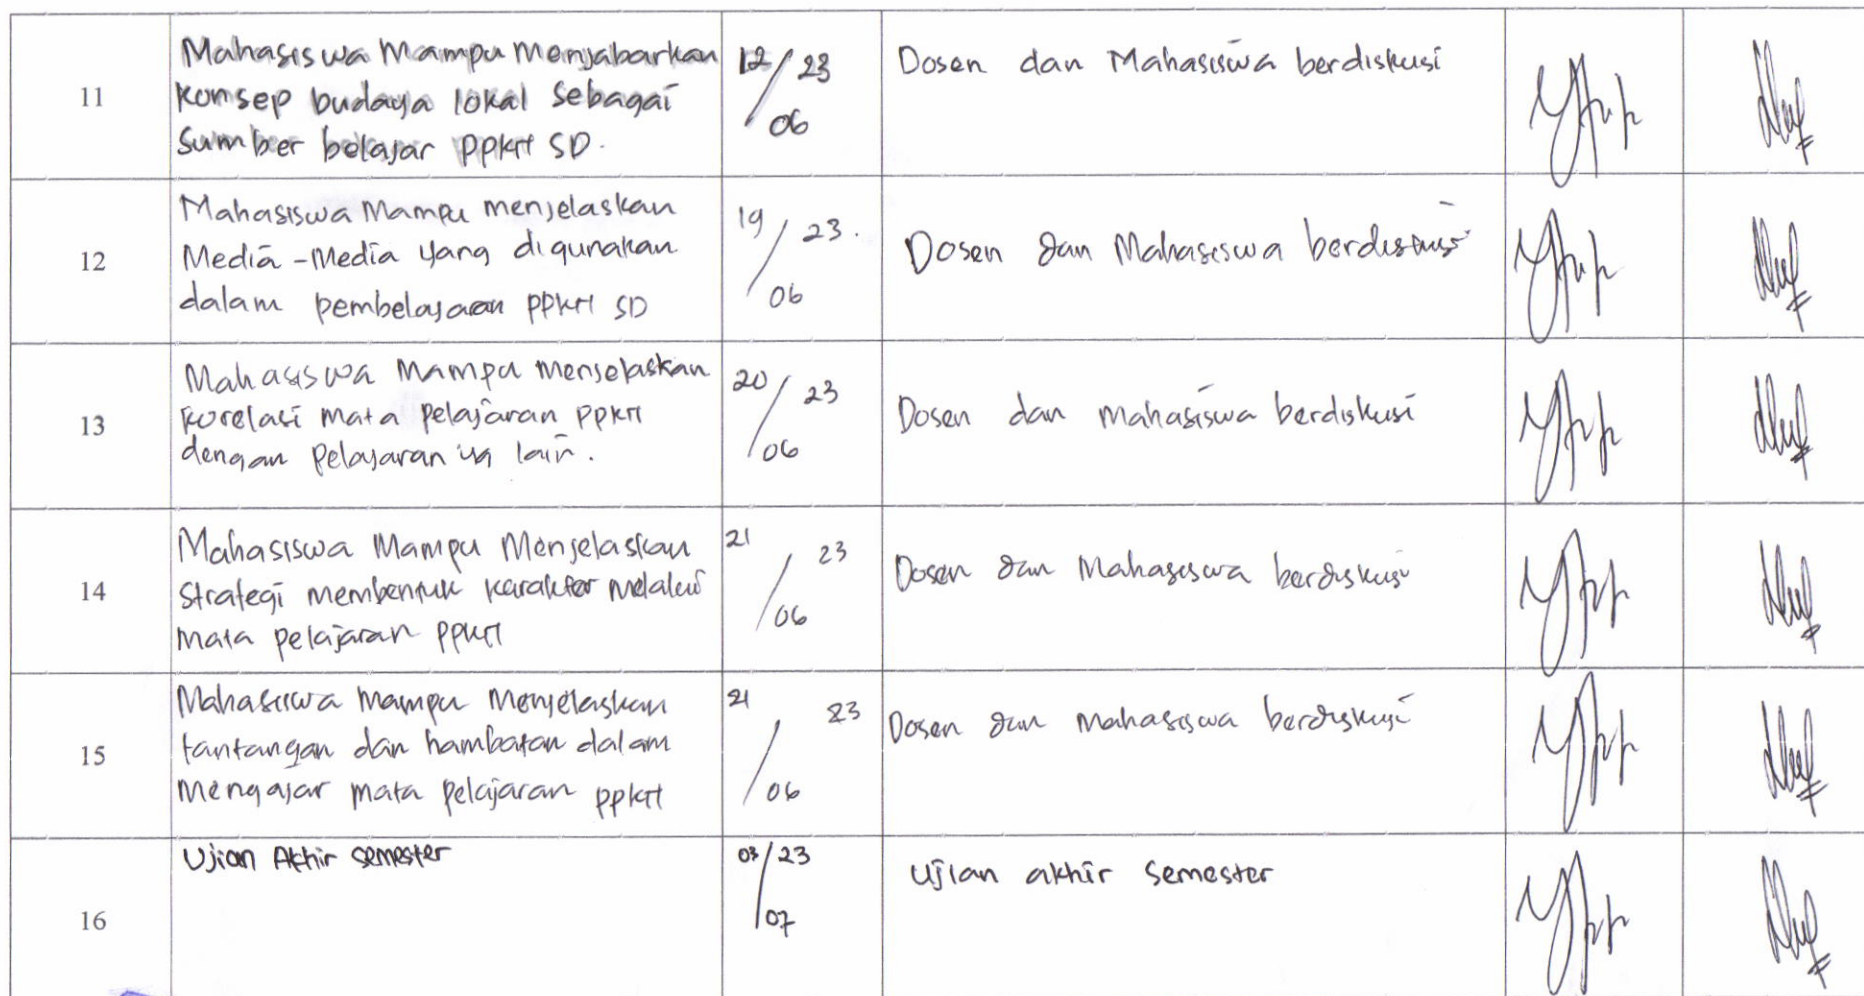 11
Mahasiswa Mampu Menjabarkan
Konsep budaya lokal sebagai
Sumber belajar PPKn SD.
12/23
06
Dosen dan Mahasiswa berdiskusi
12
Mahasiswa Mampu menjelaskan
Media-Media yang digunakan
dalam pembelajaran PPKn SD
19/23.
06
Dosen dan Mahasiswa berdiskusi
13
Mahasiswa Mampu menjelaskan
korelasi mata pelajaran PPKn
dengan pelajaran yg lain.
20/23
06
Dosen dan Mahasiswa berdiskusi
14
Mahasiswa Mampu Menjelaskan
Strategi membentuk karakter melalui
mata pelajaran PPKn
21/23
06
Dosen dan Mahasiswa berdiskusi
15
Mahasiswa Mampu Menjelaskan
tantangan dan hambatan dalam
mengajar mata pelajaran PPKn
21/23
06
Dosen dan Mahasiswa berdiskusi
16
Ujian Akhir Semester
03/23
07
Ujian akhir Semester